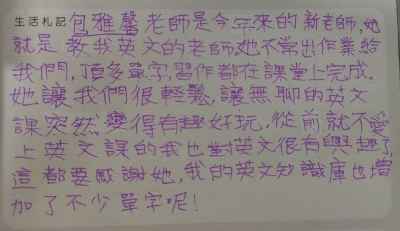 生活札記 包雅馨老師是今年來的新老師,她
就是教我英文的老師,她不常出作業給
我們,頂多單字,習作都在課堂上完成.
她讓我們很輕鬆,讓無聊的英文
課突然變得有趣好玩,從前就不愛
上英文課的我也對英文很有興趣了
這都要感謝她,我的英文知識庫也增
加了不少單字呢!